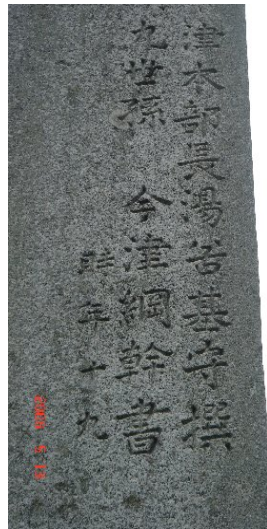 津本部長湯谷基守撰
九世孫 今津綱幹書
年十九